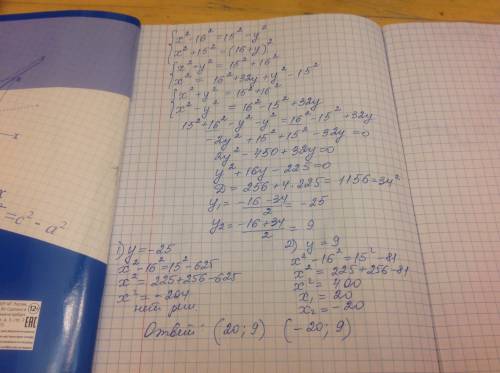 x² - 16² = 15² - y²
x² + 15² = (16+y)²
x² + y² = 15² + 16²
x² = 16² + 32y + y² - 15²
x² + y² = 15² + 16²
x² - y² = 16² - 15² + 32y
15² + 16² - y² - y² = 16² - 15² + 32y
-2y² + 15² + 15² - 32y = 0
2y² - 450 + 32y = 0
y² + 16y - 225 = 0
D = 256 + 4·225 = 1156 = 34²
y₁ = (-16 - 34)/2 = -25
y₂ = (-16 + 34)/2 = 9
1) y = -25
x² - 16² = 15² - 625
x² = 225 + 256 - 625
x² = -204
нет реш
2) y = 9
x² - 16² = 15² - 81
x² = 225 + 256 - 81
x² = 400
x₁ = 20
x₂ = -20
Ответ: (20; 9) (-20; 9)
= c² - a²
x
12+
EAC